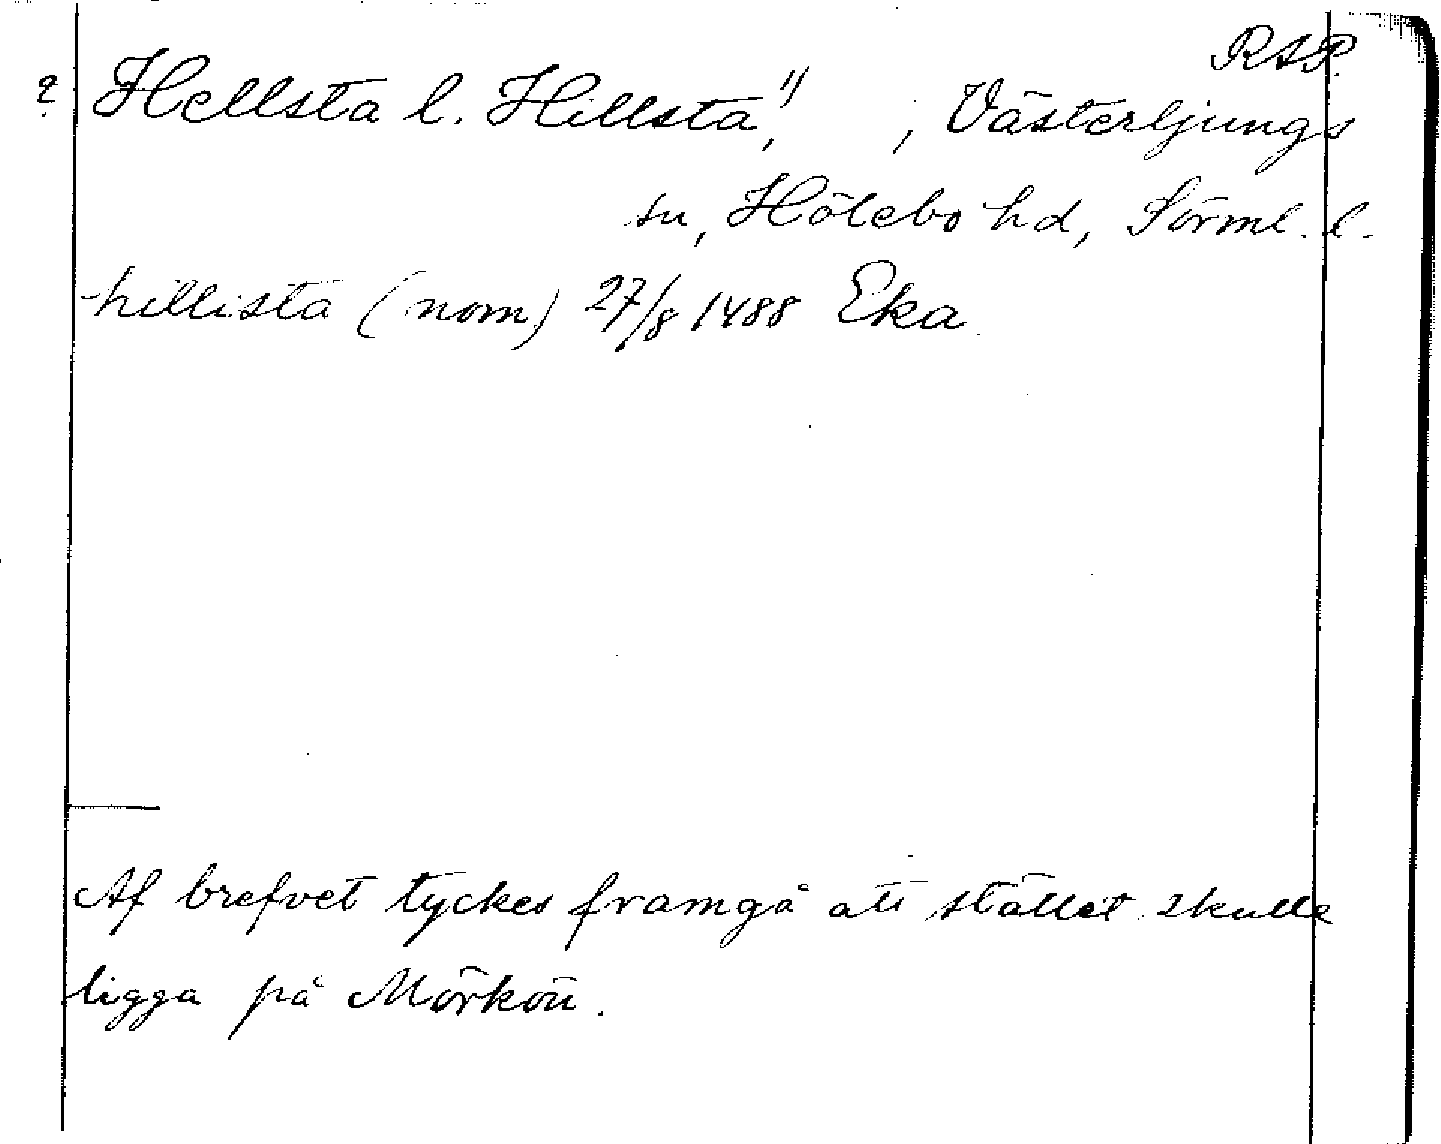 RAP.
? Hellsta l. Hillsta, 1) , Västerljungs
sn, Hölebo hd, Sörml. l.
hillista (nom) 27/8 1488 Eka
Af brefvet tyckes framgå att stället skulle
ligga på Mörkön.